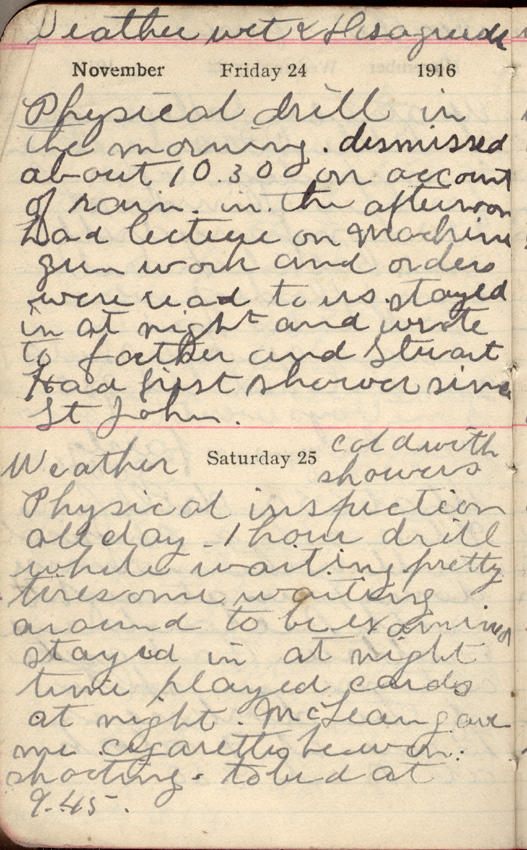 Weather wet & disagreeable
November Friday 24 1916
Physical drill in
the morning. dismissed
about 10.30 on account
of rain. in the afternoon
had lecture on Machine
gun work and orders
were read to us. stayed
in at night and wrote
to farther and Stuart
Had first shower since
St John.
Weather Saturday 25 cold with
showers
Physical inspection
all day. 1 hour drill
while waiting pretty
tiresome waiting
around to be examined
stayed in at night
time played cards
at night. McLean gave
me cigarettes he won.
shooting. to bed at
9.45.